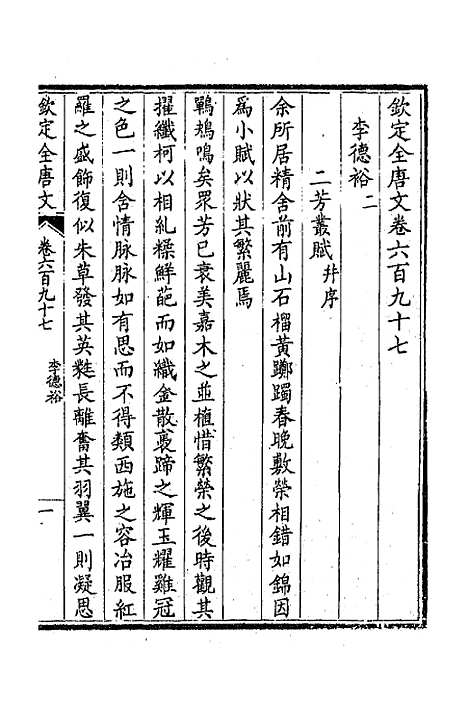 欽定全唐文卷六百九十七
李德裕二
二芳叢賦并序
余所居精舍前有山石榴黃躑躅春晚敷榮相錯如錦因
為小賦以狀其繁麗焉
鶗鴂鳴矣眾芳已衰美嘉木之並植惜繁榮之後時觀其
擢纖柯以相糺糅鮮葩而如織金散褭蹄之輝玉耀雞冠
之色一則含情脉脉如有思而不得類西施之容冶服紅
羅之盛飾復似朱草發其英蕤長離奮其羽翼一則凝思
欽定全唐文
卷六百九十七
李德裕
一